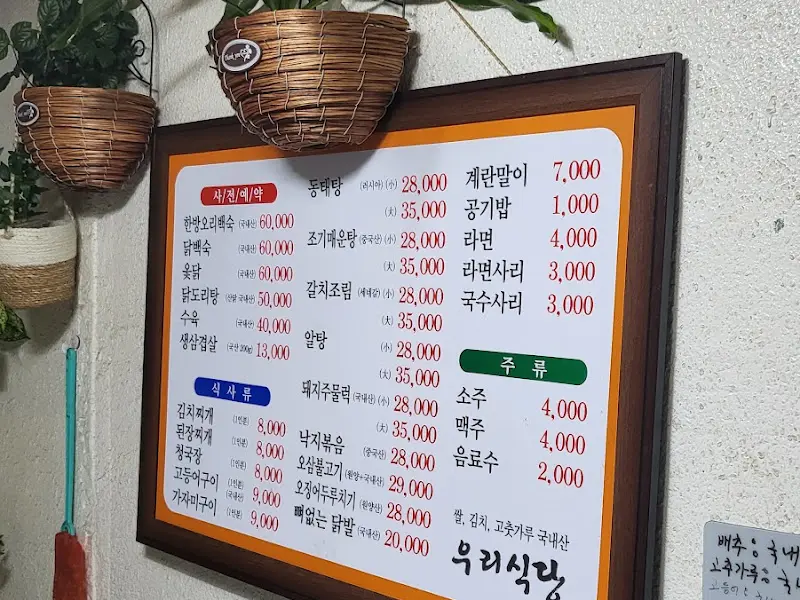 사/전/예/약
한방오리백숙 (국내산) 60,000
닭백숙 (국내산) 60,000
옻닭 (국내산) 60,000
닭도리탕 (신닭 국내산) 50,000
수육 (국내산) 40,000
생삼겹살 (국산 200g) 13,000
식 사 류
김치찌개 (1인분) 8,000
된장찌개 (1인분) 8,000
청국장 (1인분) 8,000
고등어구이 (국내산) 9,000
가자미구이 (1인분) 9,000
동태탕 (러시아) (小) 28,000
(大) 35,000
조기매운탕 (중국산) (小) 28,000
(大) 35,000
갈치조림 (세네갈) (小) 28,000
(大) 35,000
알탕 (小) 28,000
(大) 35,000
돼지주물럭 (국내산) (小) 28,000
(大) 35,000
낙지볶음 (중국산) 28,000
오삼불고기 (원양+국내산) 29,000
오징어두루치기 (원양산) 28,000
뼈없는 닭발 (국내산) 20,000
계란말이 7,000
공기밥 1,000
라면 4,000
라면사리 3,000
국수사리 3,000
주 류
소주 4,000
맥주 4,000
음료수 2,000
쌀, 김치, 고춧가루 국내산
우리식당
배추 : 국내
고춧가루 : 국내